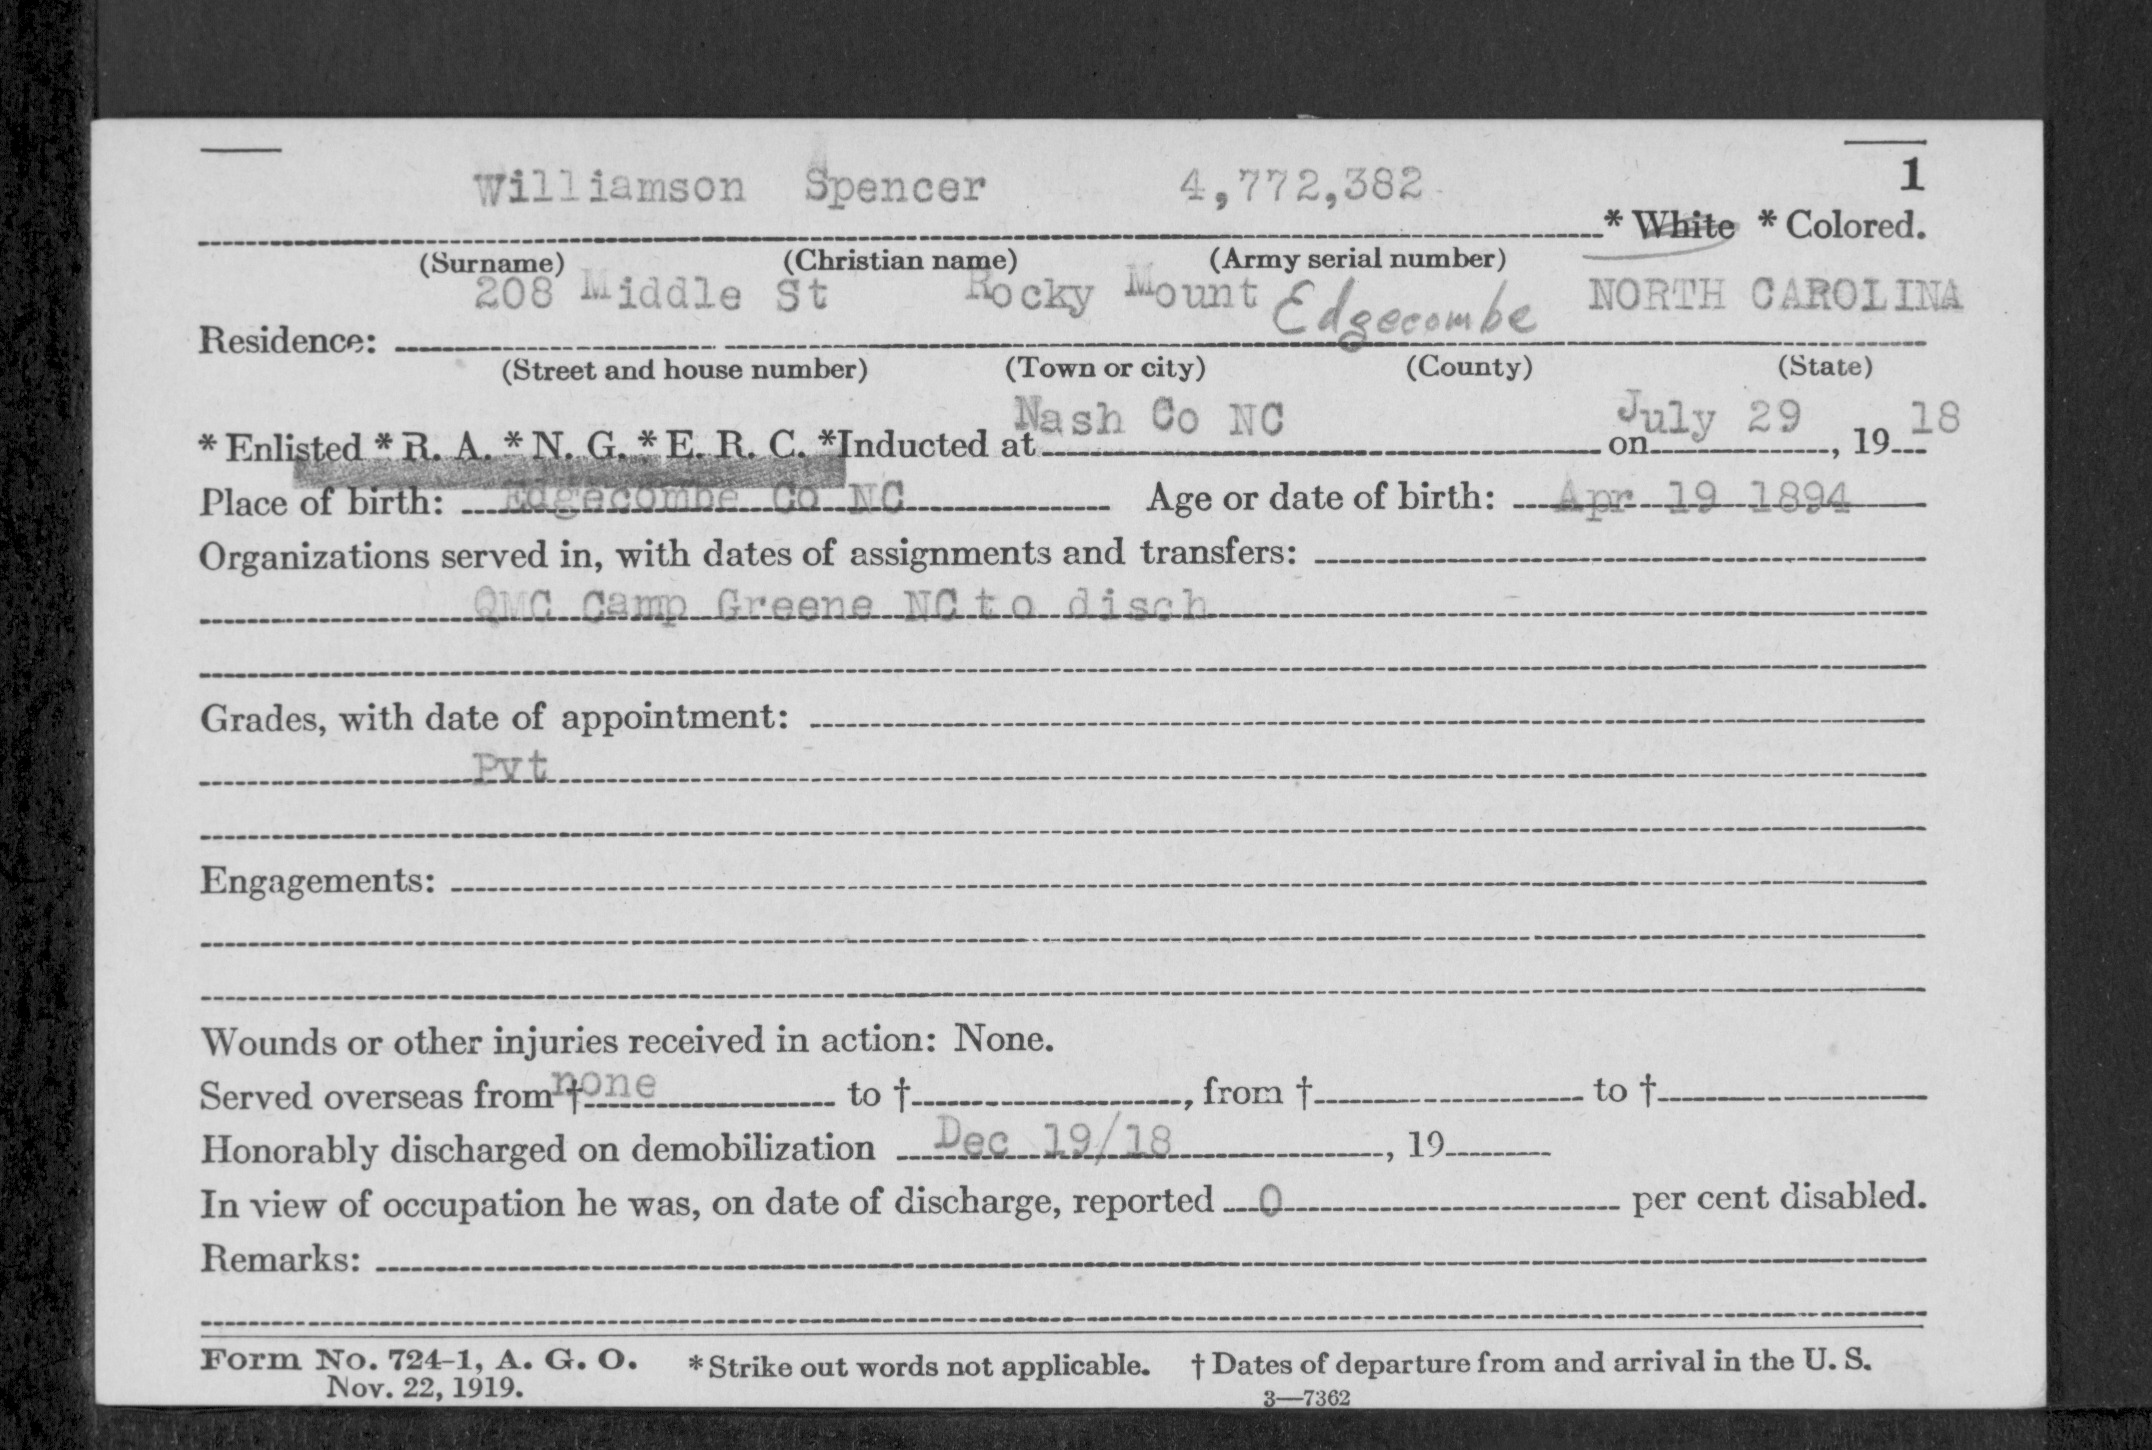 1
Williamson Spencer 4,772,382 * White * Colored.
(Surname) (Christian name) (Army serial number)
208 Middle St Rocky Mount Edgecombe NORTH CAROLINA
Residence:
(Street and house number) (Town or city) (County) (State)
* Enlisted * R. A. * N. G. * E. R. C. *Inducted at Nash Co NC on July 29, 1918
Place of birth: Edgecombe Co NC Age or date of birth: Apr 19 1894
Organizations served in, with dates of assignments and transfers:
QMC Camp Greene NC to disch
Grades, with date of appointment:
Pvt
Engagements:
Wounds or other injuries received in action: None.
Served overseas from † none to †, from † to †
Honorably discharged on demobilization Dec 19/18, 19
In view of occupation he was, on date of discharge, reported 0 per cent disabled.
Remarks:
Form No. 724-1, A. G. O. * Strike out words not applicable. † Dates of departure from and arrival in the U. S.
Nov. 22, 1919. 3—7362